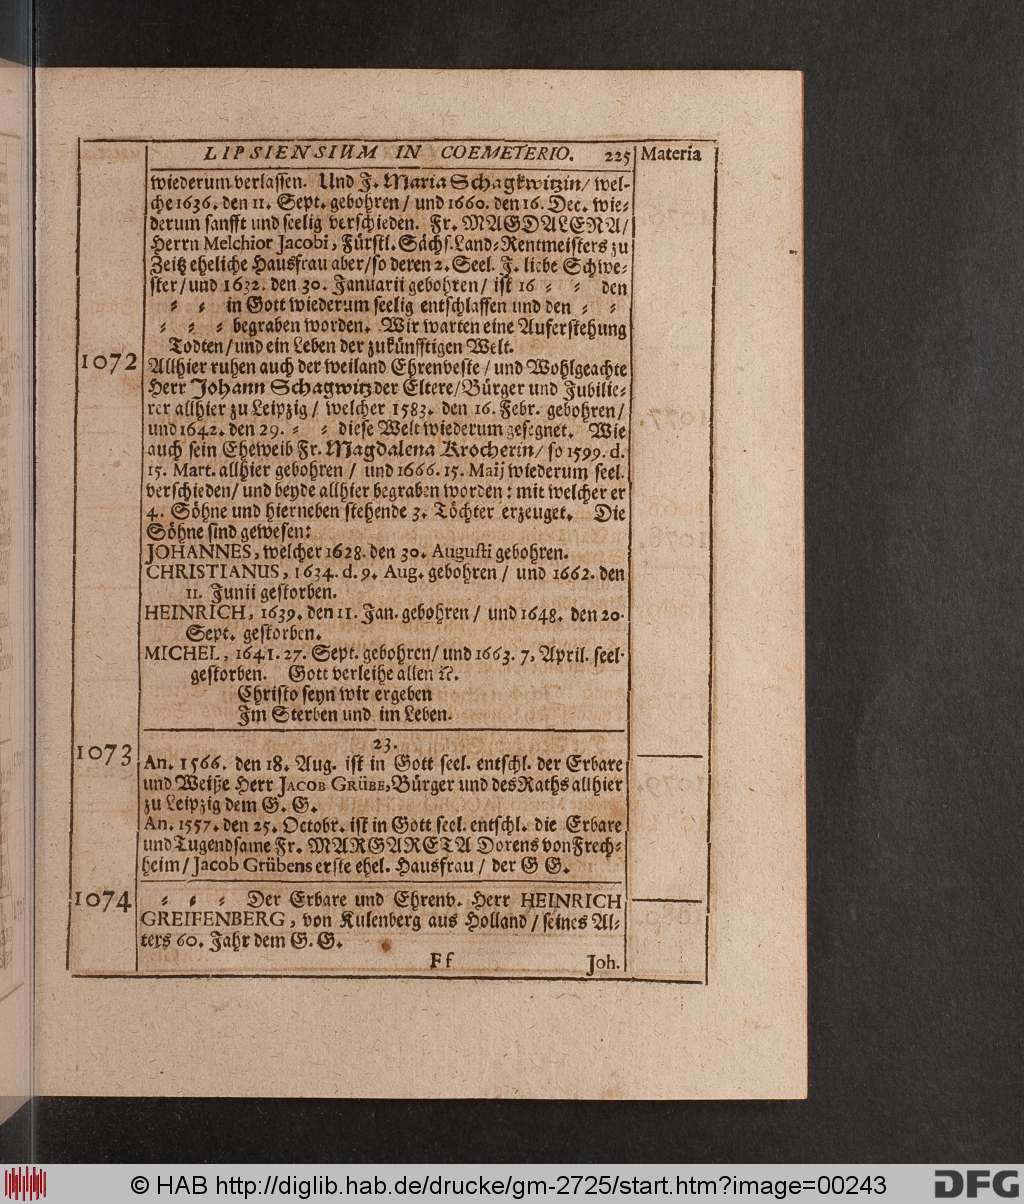 LIPSIENSIUM IN COEMETERIO. 225 Materia
wiederum verlassen. Und J. Maria Schagkwitzin / wel-
che 1636. den 11. Sept. gebohren / und 1660. den 16. Dec. wie-
derum sanfft und seelig verschieden. Fr. MAGDALENA /
Herrn Melchior Jacobi, Fürstl. Sächs. Land-Rentmeisters zu
Zeitz eheliche Hausfrau aber / so deren 2. Seel. J. liebe Schwe-
ster / und 1632. den 30. Januarii gebohren / ist 16 - - den
- - in Gott wiederum seelig entschlaffen und den - -
- - - begraben worden. Wir warten eine Auferstehung
Todten / und ein Leben der zukünfftigen Welt.
1072 Allhier ruhen auch der weiland Ehrenveste / und Wohlgeachte
Herr Johann Schagwitz der Eltere / Bürger und Jubilie-
rer allhier zu Leipzig / welcher 1583. den 16. Febr. gebohren /
und 1642. den 29. - - diese Welt wiederum gesegnet. Wie
auch sein Eheweib Fr. Magdalena Krocherin / so 1599. d.
15. Mart. allhier gebohren / und 1666. 15. Maij wiederum seel.
verschieden / und beyde allhier begraben worden: mit welcher er
4. Söhne und hierneben stehende 3. Töchter erzeuget. Die
Söhne sind gewesen:
JOHANNES, welcher 1628. den 30. Augusti gebohren.
CHRISTIANUS, 1634. d. 9. Aug. gebohren / und 1662. den
11. Junii gestorben.
HEINRICH, 1639. den 11. Jan. gebohren / und 1648. den 20.
Sept. gestorben.
MICHEL, 1641. 27. Sept. gebohren / und 1663. 7. April. seel.
gestorben. Gott verleihe allen ꝛc.
Christo seyn wir ergeben
Im Sterben und im Leben.
23.
1073 An. 1566. den 18. Aug. ist in Gott seel. entschl. der Erbare
und Weiße Herr JACOB GRÜBE, Bürger und des Raths allhier
zu Leipzig dem G. G.
An. 1557. den 25. Octobr. ist in Gott seel. entschl. die Erbare
und Tugendsame Fr. MARGARETA Dorens von Frech-
heim / Jacob Grübens erste ehel. Hausfrau / der G G.
1074 - - - Der Erbare und Ehrenv. Herr HEINRICH
GREIFENBERG, von Kulenberg aus Holland / seines Al-
ters 60. Jahr dem G. G.
Ff Joh.
© HAB http://diglib.hab.de/drucke/gm-2725/start.htm?image=00243
DFG